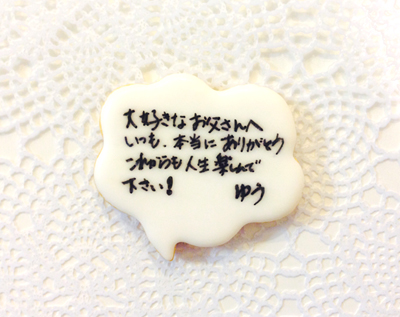 大好きなお父さんへ
いつも、本当にありがとう
これからも人生楽しんで
下さい!
ゆう